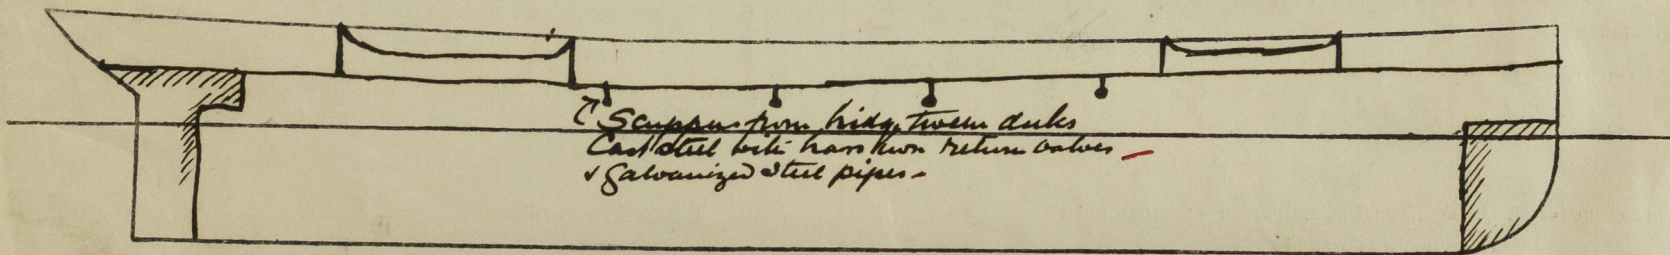 Scuppers from bridge tween decks
Cast steel with brass non return valves
& Galvanized steel pipes